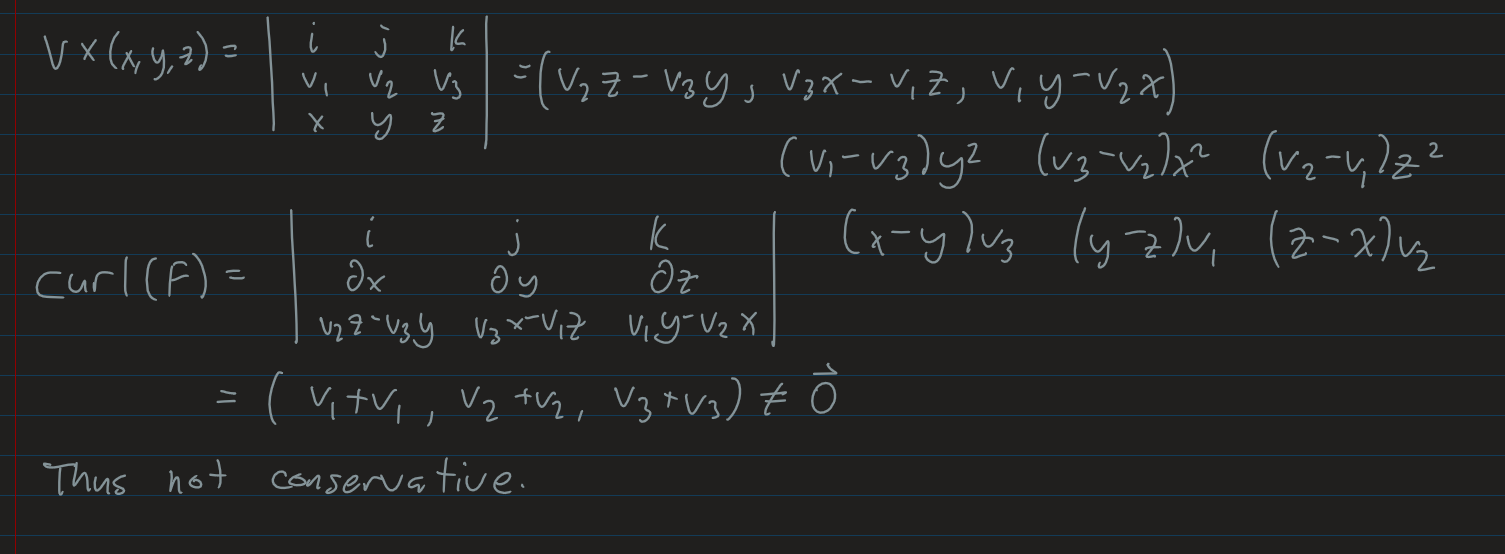 V × (x, y, z) = | i j k ; v₁ v₂ v₃ ; x y z | = (v₂z − v₃y, v₃x − v₁z, v₁y − v₂x)
(v₁−v₃)y² (v₃−v₂)x² (v₂−v₁)z²
(x−y)v₃ (y−z)v₁ (z−x)v₂
curl(F) = | i j k ; ∂x ∂y ∂z ; v₂z−v₃y v₃x−v₁z v₁y−v₂x |
= (v₁+v₁, v₂+v₂, v₃+v₃) ≠ 0⃗
Thus not conservative.